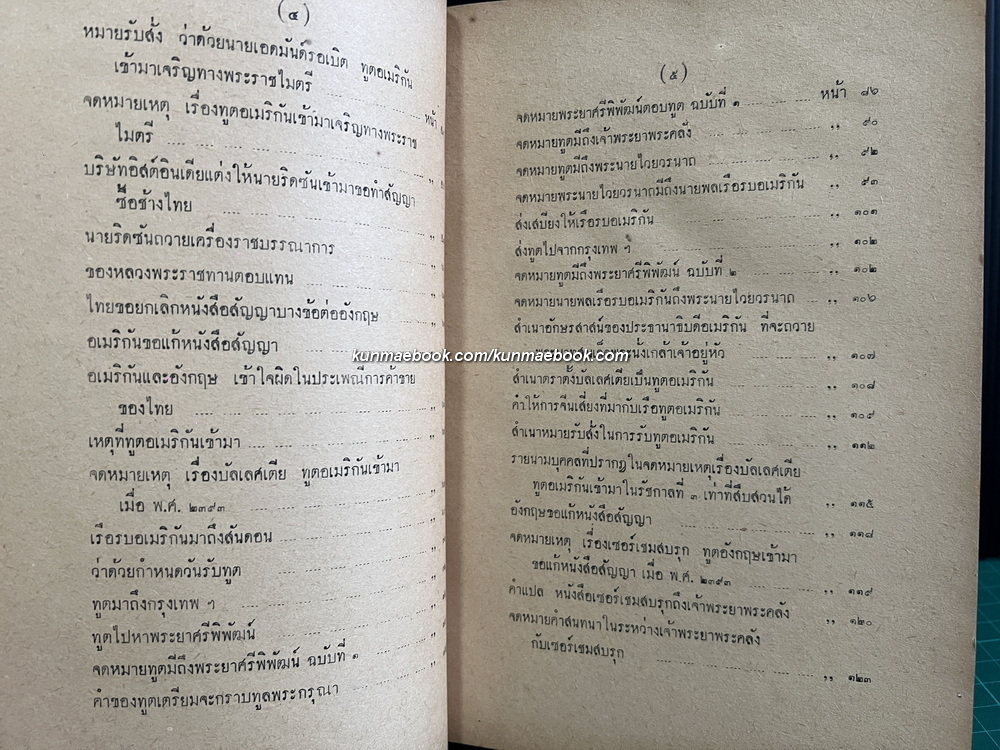 (๔)
หมายรับสั่ง ว่าด้วยนายเอดมันด์รอเบิต ทูตอเมริกัน
เข้ามาเจริญทางพระราชไมตรี
หน้า
จดหมายเหตุ เรื่องทูตอเมริกันเข้ามาเจริญทางพระราช
ไมตรี
บริษัทอิสต์อินเดียแต่งให้นายริดซันเข้ามาขอทำสัญญา
ซื้อช้างไทย
นายริดซันถวายเครื่องราชบรรณาการ
ของหลวงพระราชทานตอบแทน
ไทยขอยกเลิกหนังสือสัญญาบางข้อต่ออังกฤษ
อเมริกันขอแก้หนังสือสัญญา
อเมริกันและอังกฤษ เข้าใจผิดในประเพณีการค้าขาย
ของไทย
เหตุที่ทูตอเมริกันเข้ามา
จดหมายเหตุ เรื่องบัลเลศเตีย ทูตอเมริกันเข้ามา
เมื่อ พ.ศ. ๒๓๙๓
เรือรบอเมริกันมาถึงสันดอน
ว่าด้วยกำหนดวันรับทูต
ทูตมาถึงกรุงเทพ ฯ
ทูตไปหาพระยาศรีพิพัฒน์
จดหมายทูตมีถึงพระยาศรีพิพัฒน์ ฉบับที่ ๑
คำของทูตเตรียมจะกราบทูลพระกรุณา
(๕)
จดหมายพระยาศรีพิพัฒน์ตอบทูต ฉบับที่ ๑ หน้า ๘๖
จดหมายทูตมีถึงเจ้าพระยาพระคลัง ,, ๙๐
จดหมายทูตมีถึงพระนายไวยวรนาถ ,, ๙๒
จดหมายพระนายไวยวรนาถมีถึงนายพลเรือรบอเมริกัน ,, ๙๓
ส่งเสบียงให้เรือรบอเมริกัน ,, ๑๐๑
ส่งทูตไปจากกรุงเทพ ฯ ,, ๑๐๒
จดหมายทูตมีถึงพระยาศรีพิพัฒน์ ฉบับที่ ๒ ,, ๑๐๒
จดหมายนายพลเรือรบอเมริกันถึงพระนายไวยวรนาถ ,, ๑๐๖
สำเนาอักษรสาส์นของประธานาธิบดีอเมริกัน ที่จะถวาย
นั่งเกล้าเจ้าอยู่หัว ,, ๑๐๗
kunmaebook.com/kunmaebook.com
สำเนาตราตั้งบัลเลศเตียเป็นทูตอเมริกัน ,, ๑๐๘
คำให้การจีนเสี่ยงที่มากับเรือทูตอเมริกัน ,, ๑๐๙
สำเนาหมายรับสั่งในการรับทูตอเมริกัน ,, ๑๑๒
รายนามบุคคลที่ปรากฏในจดหมายเหตุเรื่องบัลเลศเตีย
ทูตอเมริกันเข้ามาในรัชกาลที่ ๓ เท่าที่สืบสวนได้ ,, ๑๑๕
อังกฤษขอแก้หนังสือสัญญา ,, ๑๑๘
จดหมายเหตุ เรื่องเซอร์เชมสบรุก ทูตอังกฤษเข้ามา
ขอแก้หนังสือสัญญา เมื่อ พ.ศ. ๒๓๙๓ ,, ๑๑๙
คำแปล หนังสือเซอร์เชมสบรุกถึงเจ้าพระยาพระคลัง ,, ๑๒๐
จดหมายคำสนทนาในระหว่างเจ้าพระยาพระคลัง
กับเซอร์เชมสบรุก ,, ๑๒๓